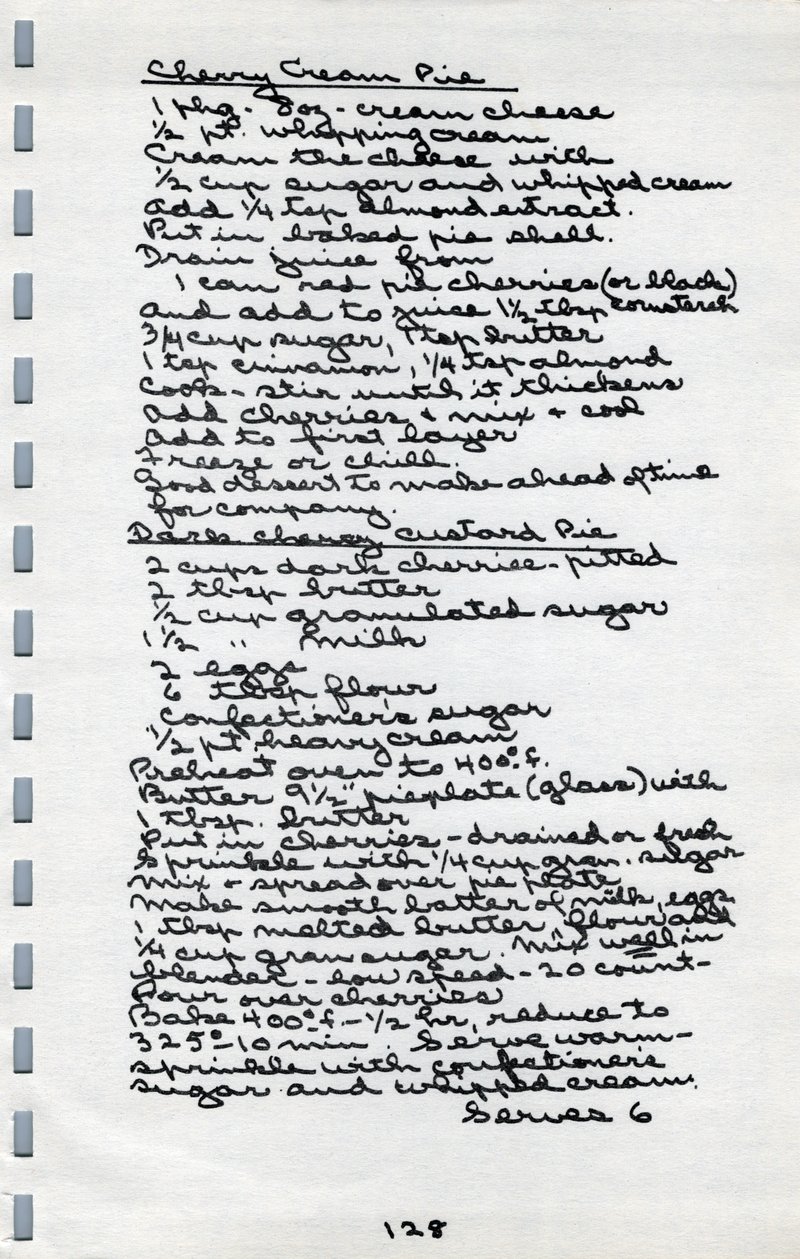 Cherry Cream Pie
1 pkg - 8oz - cream cheese
1/2 pt. whipping cream
Cream the cheese with
1/2 cup sugar and whipped cream
Add 1/4 tsp almond extract.
Put in baked pie shell.
Drain juice from
1 can red pie cherries (or black)
and add to juice 1 1/2 tbsp cornstarch
3/4 cup sugar, 1 tsp butter
1 tsp cinnamon, 1/4 tsp almond
Cook - stir until it thickens
Add cherries + mix + cool
Add to first layer
Freeze or chill.
Good dessert to make ahead of time
for company.
Dark cherry custard Pie
2 cups dark cherries - pitted
2 tbsp butter
1/2 cup granulated sugar
1 1/2 " milk
2 eggs
6 tbsp flour
Confectioner's sugar
1/2 pt. heavy cream
Preheat oven to 400° f.
Butter 9 1/2" pieplate (glass) with
1 tbsp. butter
Put in cherries - drained or fresh
Sprinkle with 1/4 cup gran. sugar
Mix + spread over pie plate
Make smooth batter of milk, eggs
1 tbsp melted butter, flour and
1/4 cup gran sugar. Mix well in
blender - low speed - 20 count -
Pour over cherries
Bake 400° f. - 1/2 hr, reduce to
325° - 10 min. Serve warm -
sprinkle with confectioner's
sugar and whipped cream.
Serves 6
128